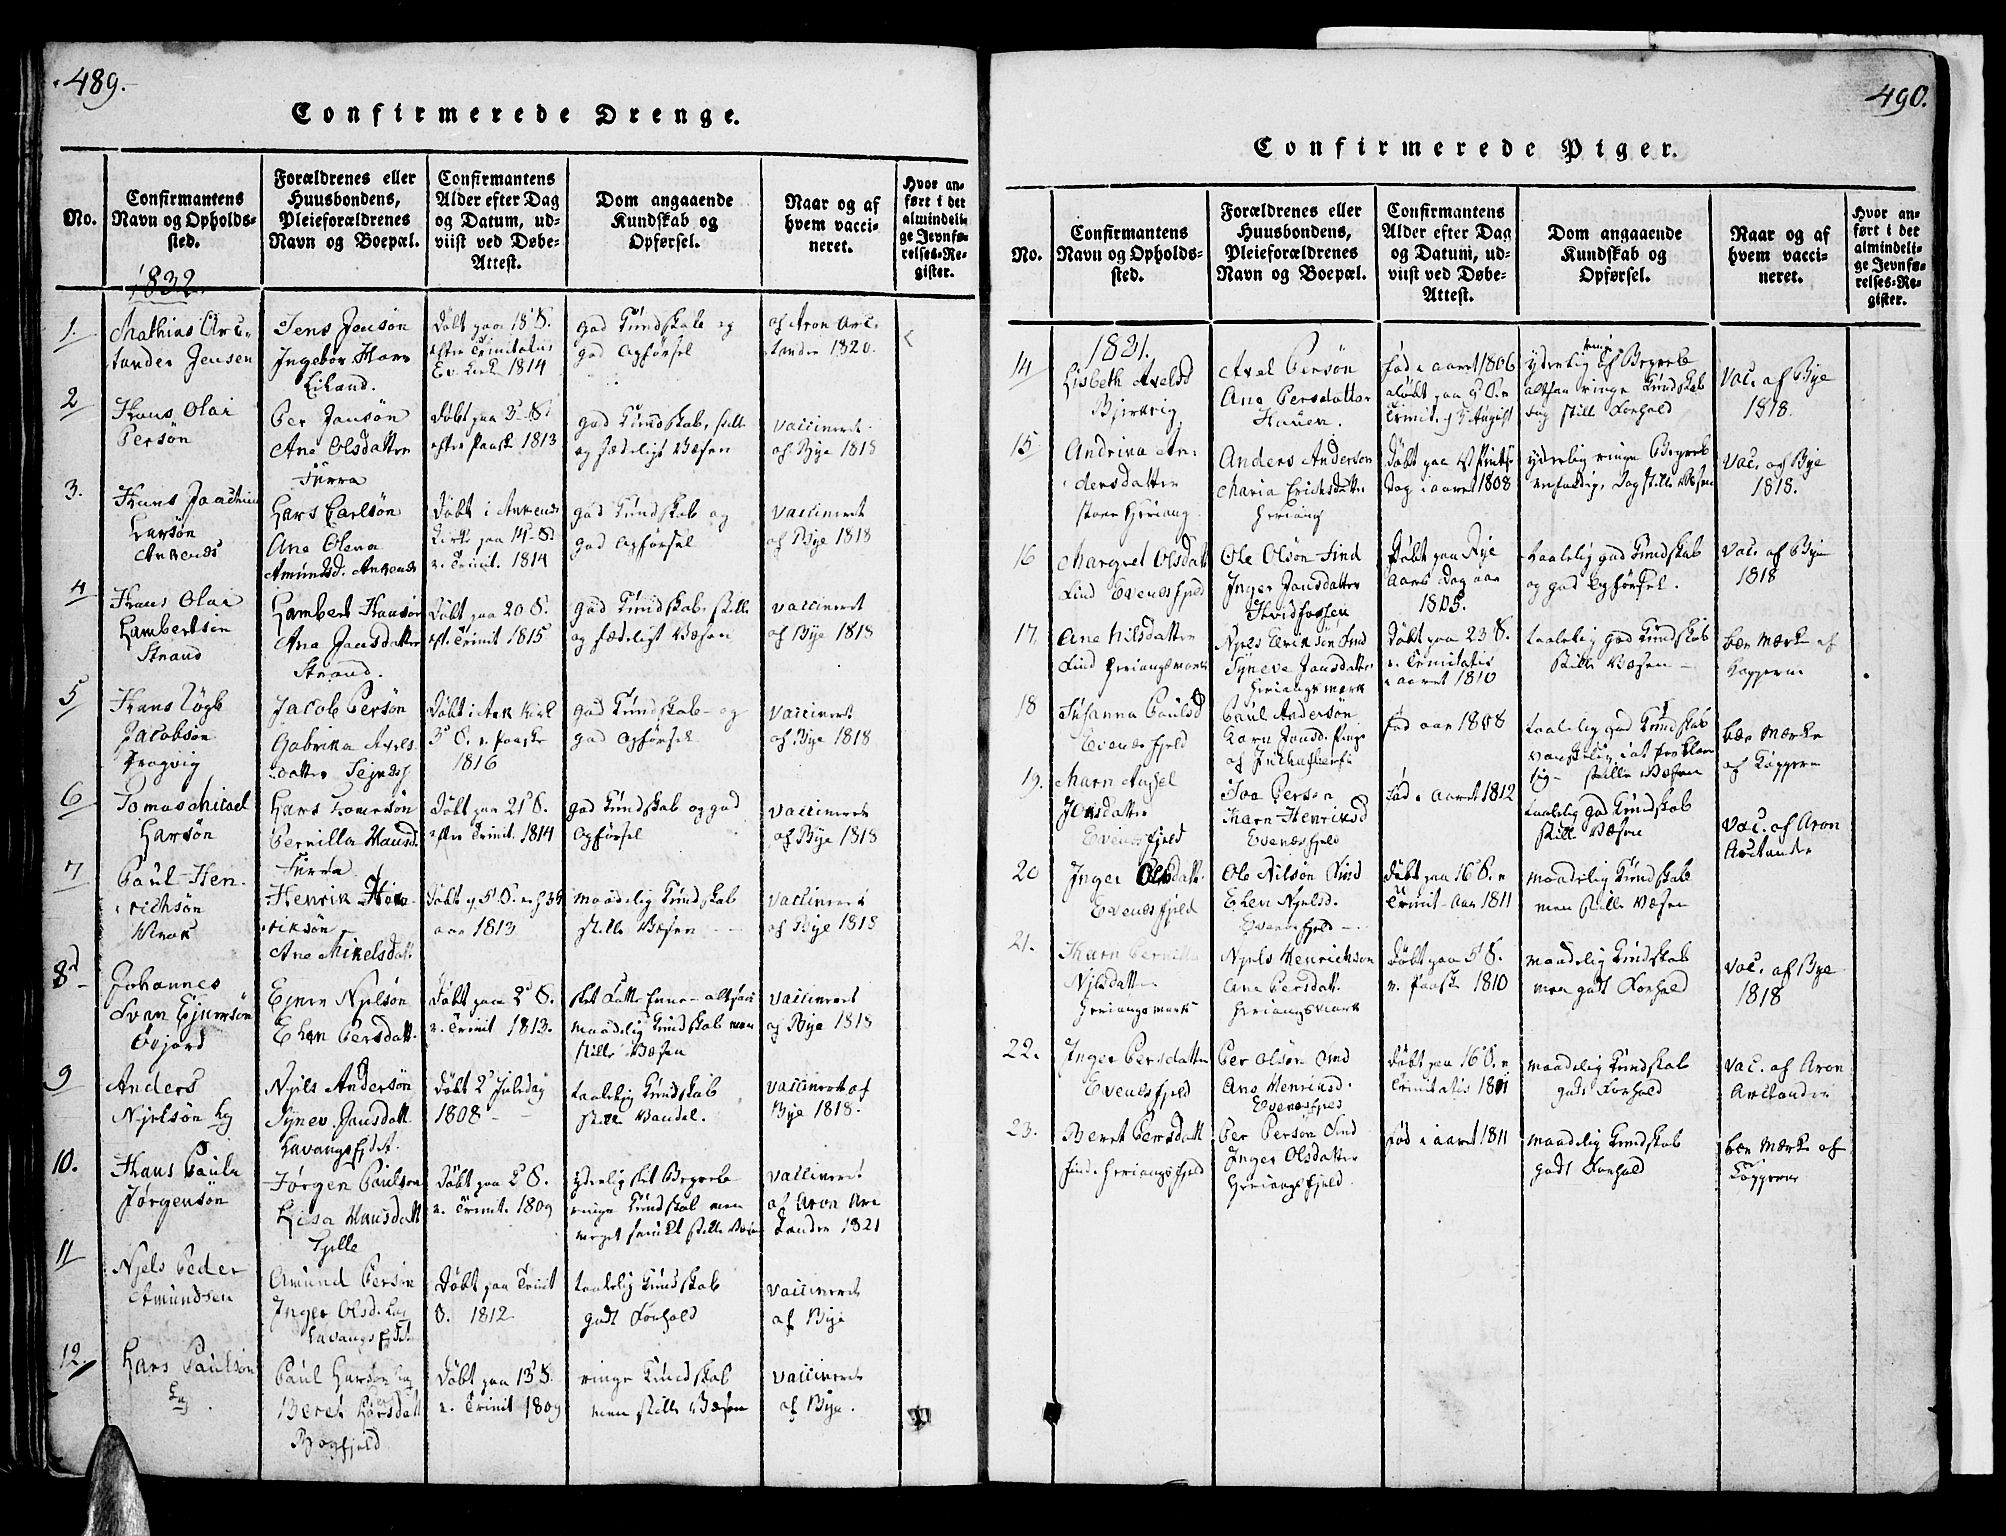 489.
Confirmerede Drenge.
No.
Confirmantens
Navn og Opholds-
sted.
Forældrenes eller
Huusbondens,
Pleieforældrenes
Navn og Boepæl.
Confirmantens
Alder efter Dag
og Datum, ud-
viist ved Døbe-
Attest.
Dom angaaende
Kundskab og
Opførsel.
Naar og af
hvem vacci-
neret.
Hvor an-
ført i det
almindeli-
ge Jevnfø-
relses-Re-
gister.
1832
1.
Mathias Arc-
tander Jensen
Jens Jensøn
Ingebor Hans
Liland.
Døbt paa 18 S.
efter Trinitatis
1814
god Kundskab og
god Opførsel
af Aron Arc-
tander 1820.
2
Hans Olai
Persøn
Per Jansøn
Ane Olsdatter
Turra
Døbt paa 3 S.
efter Paask 1813
god Kundskab, stille
og sædeligt Væsen
vaccineret
af Bye 1818
3.
Hans Joachim
Larsøn
Ankenes
Lars Carlsøn
Ane Olena
Amundsd. Ankenes
Døbt i Ankenes
Kirke paa 14 S.
e. Trinit. 1814
god Kundskab og
god Opførsel
vaccineret
af Bye 1818
4
Hans Olai
Lambertsøn
Strand
Lambert Hansøn
Ana Jansdatter
Strand.
Døbt paa 20 S.
eft. Trinit 1815
god Kundskab, stille
og sædeligt Væsen
vaccineret
af Bye 1818
5
Hans
Jacobsøn
Jacob Persøn
Gabrina Axels-
datter
Døbt i Ank Kirk
3 S. e. Paaske
1816
god Kundskab og
god Opførsel
vaccineret
af Bye 1818
6
Tomas Micael
Larsøn
Lars Tomesøn
Pernilla Hansd.
Turra
Døbt paa 21 S.
efter Trinit. 1814
god Kundskab og god
Opførsel
vaccineret
af Bye 1818
7
Paul Hen-
richsøn
Henrik Hen-
riksøn
Ane Mikelsdat.
aar 1813
maadelig Kundskab
stille Væsen
vaccineret
af Bye 1818
8
Johannes
Sven Ejnersøn
Ejner Njelsøn
Elen Persdatt.
Døbt paa 2 S.
e. Trinit 1813.
maadelig Kundskab men
stille Væsen
vaccineret
af Bye 1818
9
Anders
Njelsøn
Njels Andersøn
Synev. Jansdatt
Døbt 2 Juledag
1808
taalelig Kundskab
stille Vandel.
vaccineret af
Bye 1818.
10.
Hans Paula
Jørgensøn
Jørgen Paulsøn
Lisa Hansdatt
Døbt paa 2 S.
e. Trinit. 1809
yderlig slet Begreb
ringe Kundskab men
meget stille Væsen
vaccineret
af Aron Arc
tander 1821
11
Njels Peder
Amundsen
Amund Persøn
Inger Olsd.
Døbt paa Trinit
S. 1812
taalelig Kundskab
godt Forhold
vaccineret
af Bye
12.
Lars Paulsøn
Paul Larsøn
Beret Larsdatt
Bogfjeld
Døbt paa 13 S.
e. Trinit 1809
ringe Kundskab
men stille Væsen
vaccineret
af Bye.
490.
Confirmerede Piger.
No.
Confirmantens
Navn og Opholds-
sted.
Forældrenes eller
Huusbondens,
Pleieforældrenes
Navn og Boepæl.
Confirmantens
Alder efter Dag
og Datum, ud-
viist ved Døbe-
Attest.
Dom angaaende
Kundskab og
Opførsel.
Naar og af
hvem vacci-
neret.
Hvor an-
ført i det
almindeli-
ge Jevnfø-
relses-Re-
gister.
1831.
14
Lisbeth Axelsd
Bjerkvig
Axel Persøn
Ane Persdatter
født i aaret 1806
yderlig af Begreb
altsaa ringe Kundskab
dog stille Forhold
Vac. af Bye
1818.
15
Andrina An-
dersdatter
store Heriang
Anders Anderson
Maria Ericksdatter
Heriang
Døbt paa
Dag i aaret 1808
yderlig ringe Begreb
dog stille Væsen
Vac. af Bye
1818.
16
Margret Olsdatt
Find Evenesfjeld
Ole Olsøn Find
Inger Jansdatter
Døbt paa Nye
Aars Dag aar
1805.
taalelig god Kundskab
og god Opførsel.
Vac. af Bye
1818
17.
Ane Nilsdatter
Find Heriangsmark
Njels Eriksøn Find
Syneve Jansdatter
Heriangsmark
Døbt paa 23 S.
e. Trinitatis
aaret 1810
taalelig god Kundskab
stille Væsen
bær Mærke af
Kopperne
18
Susanna Paulsd
Evenesfjeld
Paul Andersøn
Karn Jonsd.
fød aar 1808
taalelig god Kundskab
vanskelig i at forklare
sig stille Væsen
bær Mærke
af Kopperne
19.
Marn
Evenesfjeld
Persen
Marn Henriksd
Evenesfjeld
fød i aaret 1812
taalelig god Kundskab
stille Væsen
Vac. af Aron
Arctander
20
Inger Olsdatt.
Evenesfjeld
Ole Nilsøn Find
Elen Njelsd.
Evenesfjeld
Døbt paa 16 S. e
Trinit. aar 1811
maadelig Kundskab
men stille Væsen
21.
Marn Pernilla
Njlsdatter
Heriangsmark
Njels Henrichsen
Ane Persdatt.
Heriangsmark
Døbt paa 5 S.
e. Paask 1810
maadelig Kundskab
men godt Forhold
Vac. af Bye
1818
22.
Inger Persdatter
Evenesfjeld
Per Olsøn Find
Ane Henriksd.
Evenesfjeld
Døbt paa 16 S. e
Trinitatis 1811
maadelig Kundskab
godt Forhold
Vac. af Aron
Arctander
23.
Beret Persdatt
Find Heriangsfjeld
Per Persøn Find
Inger Olsdatter
Heriangsfjeld
fød i aaret 1811
maadelig Kundskab
godt Forhold
bær Mærke af
Kopperne